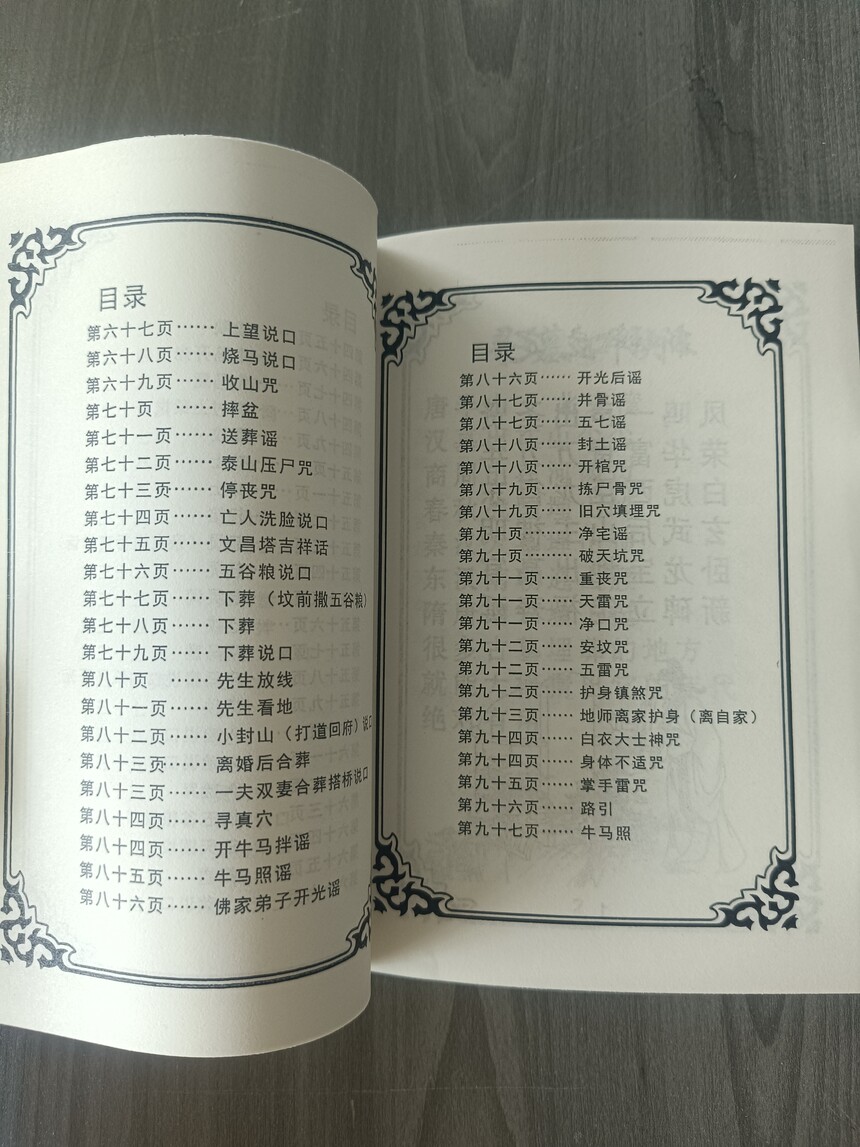 目录
第六十七页······ 上望说口
第六十八页······ 烧马说口
第六十九页······ 收山咒
第七十页 ······ 摔盆
第七十一页······ 送葬谣
第七十二页······ 泰山压尸咒
第七十三页······ 停丧咒
第七十四页······ 亡人洗脸说口
第七十五页······ 文昌塔吉祥话
第七十六页······ 五谷粮说口
第七十七页······ 下葬（坟前撒五谷粮）
第七十八页······ 下葬
第七十九页······ 下葬说口
第八十页 ······ 先生放线
第八十一页······ 先生看地
第八十二页······ 小封山（打道回府）说口
第八十三页······ 离婚后合葬
第八十三页······ 一夫双妻合葬搭桥说口
第八十四页······ 寻真穴
第八十四页······ 开牛马拌谣
第八十五页······ 牛马照谣
第八十六页······ 佛家弟子开光谣
目录
第八十六页······ 开光后谣
第八十七页······ 并骨谣
第八十七页······ 五七谣
第八十八页······ 封土谣
第八十八页······ 开棺咒
第八十九页······ 拣尸骨咒
第八十九页······ 旧穴填埋咒
第九十页········· 净宅谣
第九十页········· 破天坑咒
第九十一页······ 重丧咒
第九十一页······ 天雷咒
第九十一页······ 净口咒
第九十二页······ 安坟咒
第九十二页······ 五雷咒
第九十二页······ 护身镇煞咒
第九十三页······ 地师离家护身（离自家）
第九十四页······ 白衣大士神咒
第九十四页······ 身体不适咒
第九十五页······ 掌手雷咒
第九十六页······ 路引
第九十七页······ 牛马照